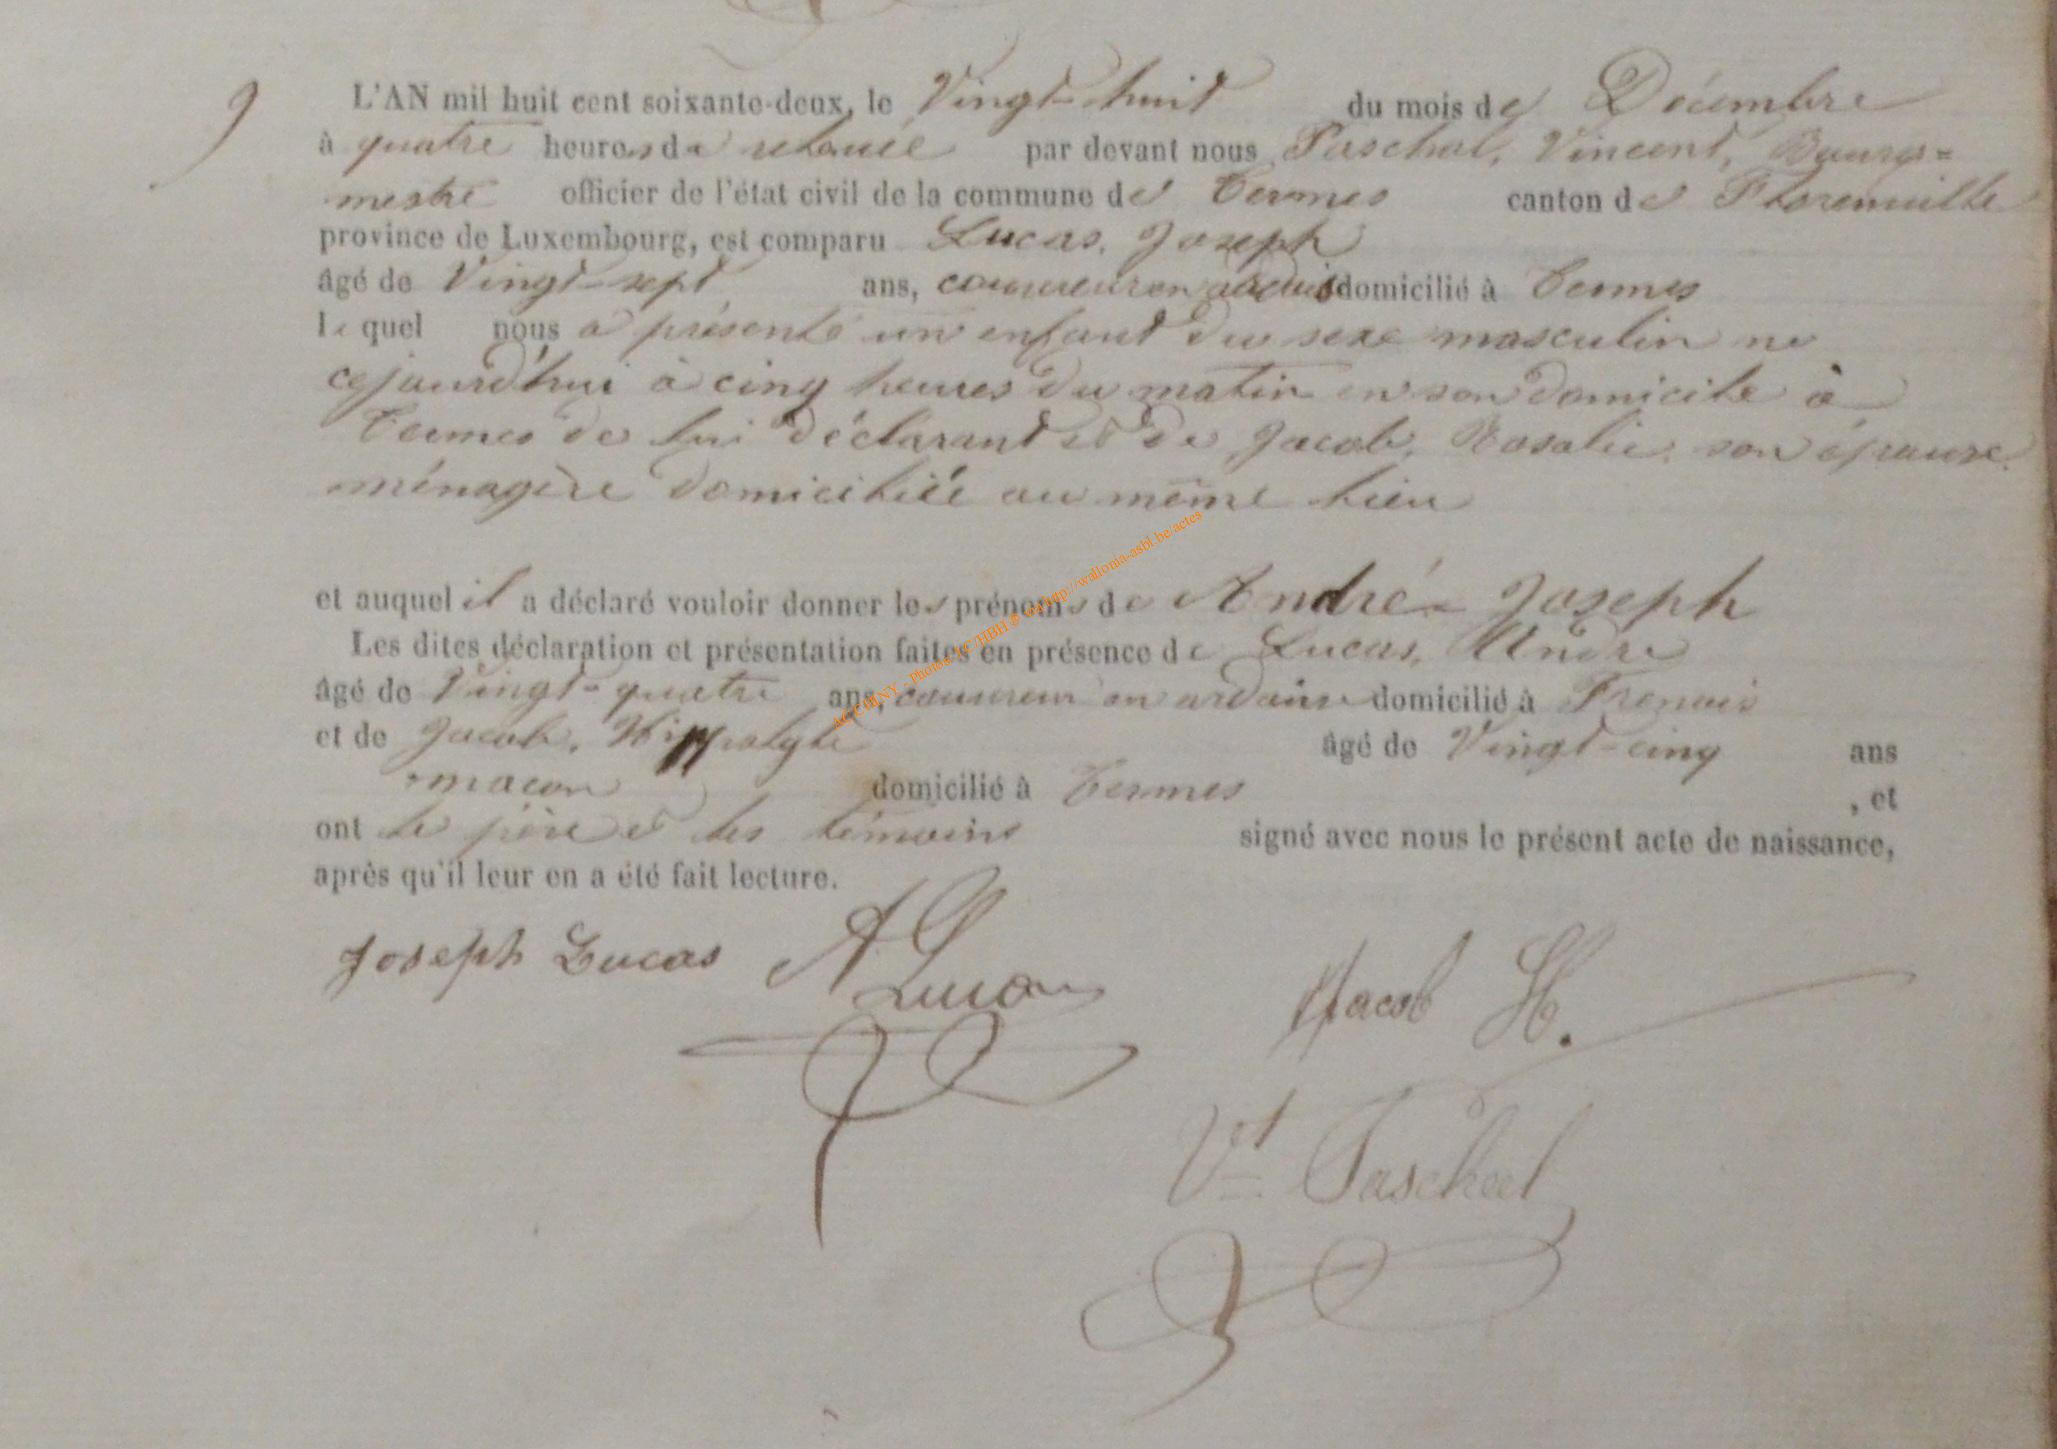 L'AN mil huit cent soixante-deux, le Vingt-huit du mois de Décembre
à quatre heures de relevée par devant nous Paschal, Vincent, Bourg=
mestre officier de l'état civil de la commune de Termes canton de Florenville
province de Luxembourg, est comparu Lucas, Joseph
âgé de Vingt-sept ans, couvreur en ardoises domicilié à Termes
lequel nous a présenté un enfant du sexe masculin né
cejourd'hui à cinq heures du matin en son domicile à
Termes de lui déclarant et de Jacob, Rosalie, son épouse
ménagère domiciliée au même lieu
et auquel il a déclaré vouloir donner les prénoms de André-Joseph
Les dites déclaration et présentation faites en présence de Lucas, André
âgé de Vingt-quatre ans, couvreur en ardoise domicilié à Frenois
et de Jacob, Hippolyte âgé de Vingt-cinq ans
macon domicilié à Termes , et
ont le père et les témoins signé avec nous le présent acte de naissance,
après qu'il leur en a été fait lecture.
Joseph Lucas A Lucas Jacob H.
Vt Paschal
http://wallonia-asbl.be/actes